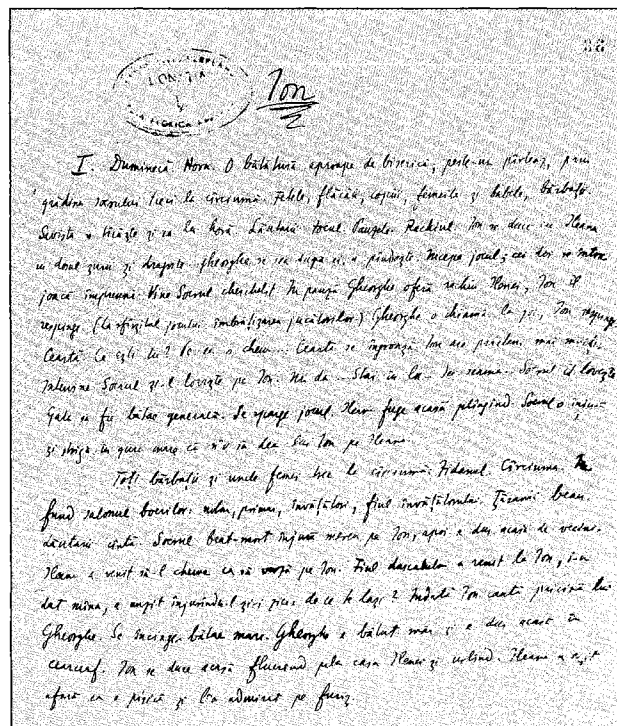 Ion
I. Duminecă. Hora. O bătătură aproape de biserică, peste-un pîrleaz, prin
grădina socrului treci la cîrciumă. Fetele, flăcăii, copiii, femeile și babele, bărbații.
și ia la horă. Lăutarii. Jocul. Pauzele. Rachiul. Ion se duce cu Ileana
în dosul șurii și dragoste. Gheorghe se ia după ei, îi pîndește. Începe jocul; cei doi se întorc
joacă împreună. Vine Socrul cherchelit. În pauză Gheorghe oferă rachiu Ilenei, Ion îl
respinge. (La sfîrșitul jocului îmbrățișarea jucătorilor) Gheorghe o chiamă la joc, Ion respinge
Ceartă. Ce ești tu? De ce o chemi... Cearta se îngroașă. Ion are prieteni mai mulți.
Intervine Socrul și-l lovește pe Ion. Nu da... Stai în la... seama. Socrul îl lovește
Gata să fie bătae generală. Se sparge jocul. Ileana fuge acasă plîngînd. Socrul o înjură
și strigă în gura mare că n'o să dea lui Ion pe Ileana.
Toți bărbații și unele femei trec la cîrciumă. Jidanul. Cîrciuma. În
fund salonul boerilor: notar, primar, învățător, fiul învățătorului. Țăranii beau.
Lăutarii cîntă. Socrul beat-mort înjură mereu pe Ion, apoi e dus acasă de vecini.
Ileana a venit să-l cheme ca să vază pe Ion. Fiul dascălului a venit la Ion, i-a
dat mîna, a ieșit înjurîndu-l și-i zice de ce te lași? Îndată Ion caută pricină lui
Gheorghe. Se încinge bătae mare. Gheorghe e bătut măr și e dus acasă în
cearceaf. Ion se duce acasă fluerînd pela casa Ilenei și urlînd. Ileana a eșit
afară ca o pisică și l-a admirat pe furiș.